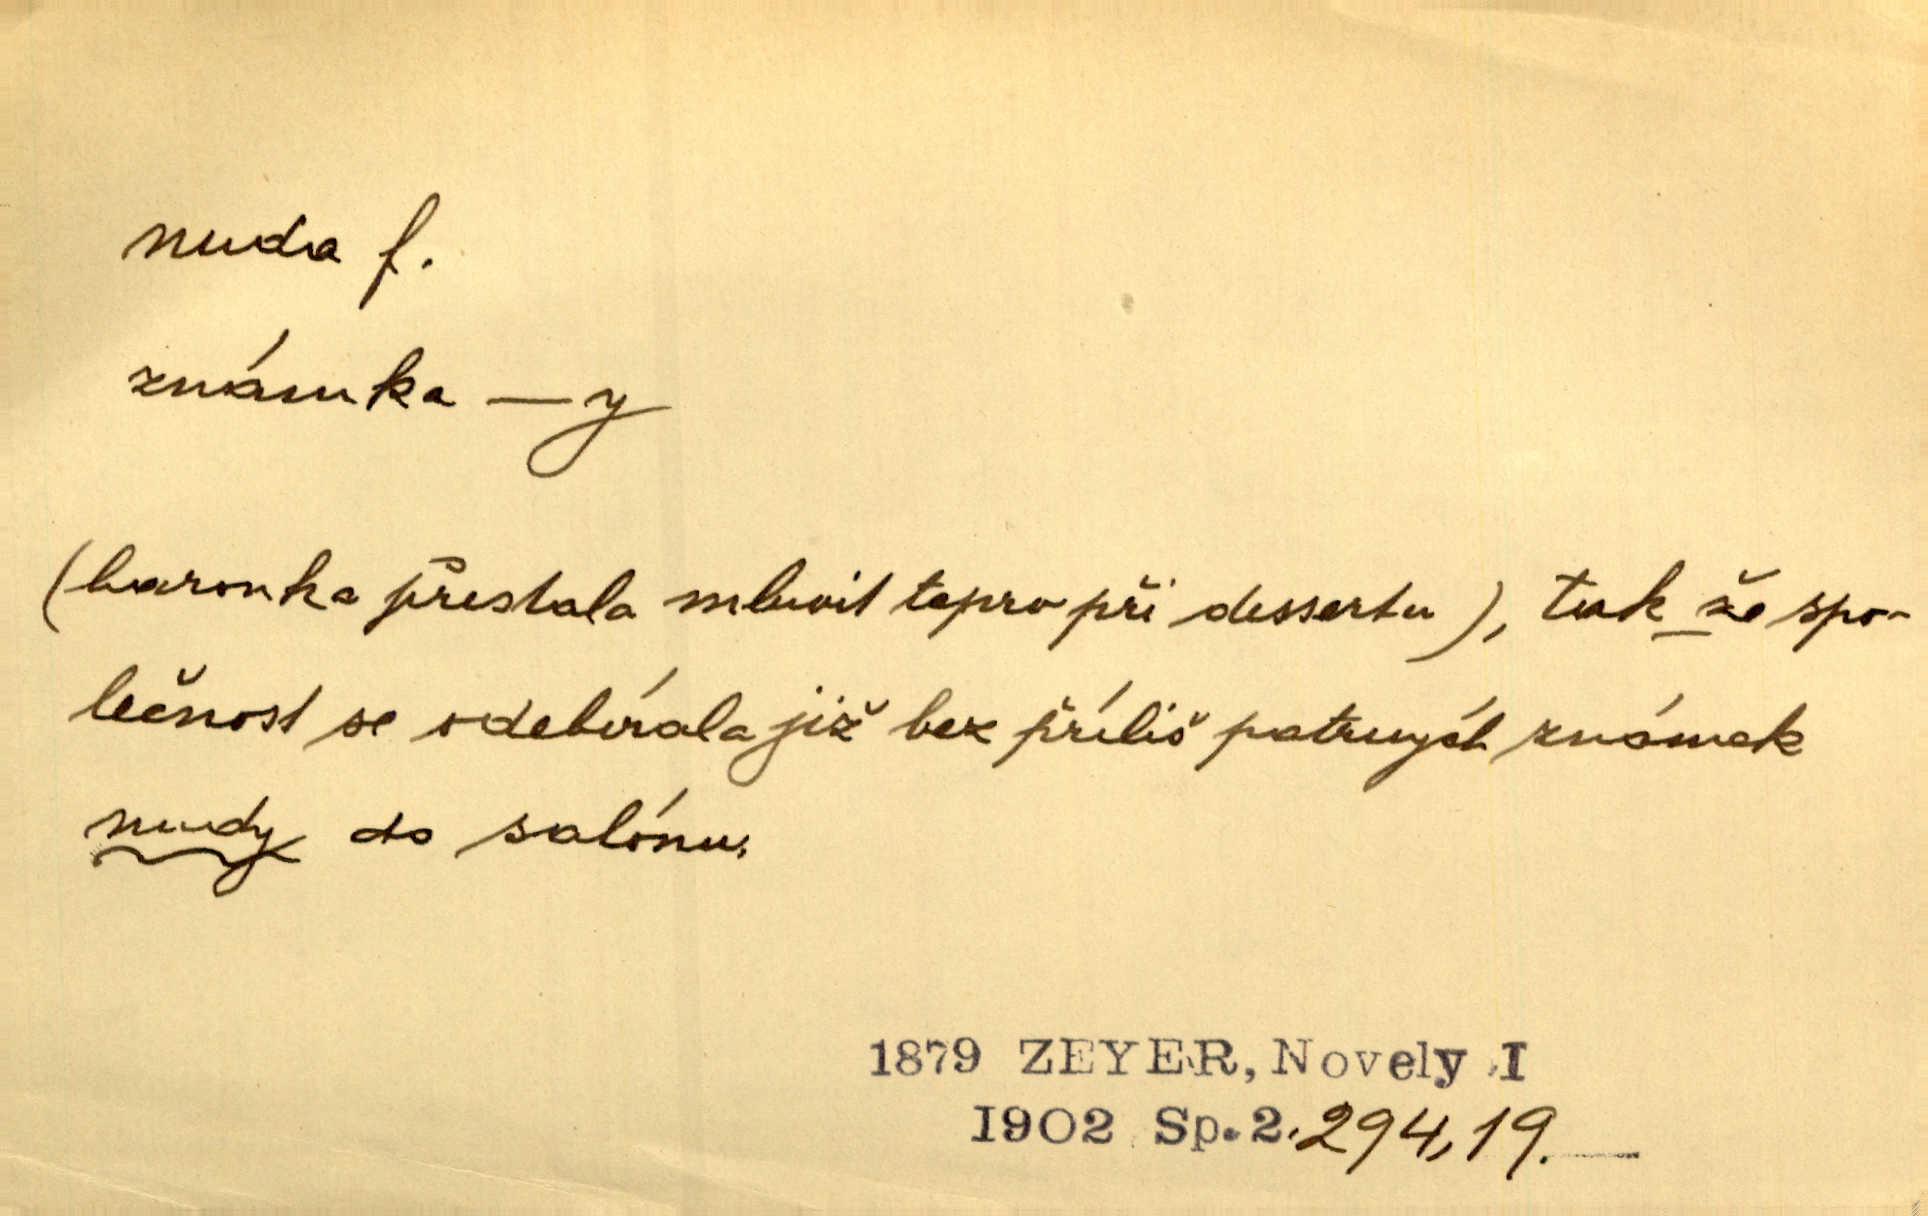 nuda f.
známka —y
(baronka přestala mluvit teprv při dessertu), tak že spo-
lečnost se odebírala již bez příliš patrných známek
nudy do salónu.
1879 ZEYER, Novely I
1902 Sp. 2. 294,19.